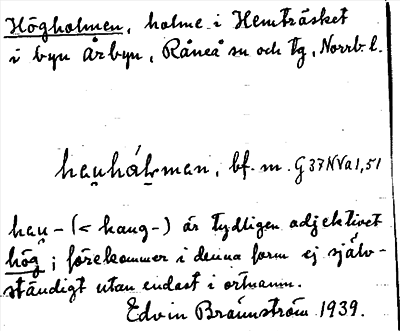 Högholmen, holme i Hemträsket
i byn Årbyn, Råneå sn och tg, Norrb. l.
hau̯hál̥man, bf. m. G 37 NVa1,51
hau̯- (< haug-) är tydligen adjektivet
hög; förekommer i denna form ej själv-
ständigt utan endast i ortnamn.
Edvin Brännström 1939.